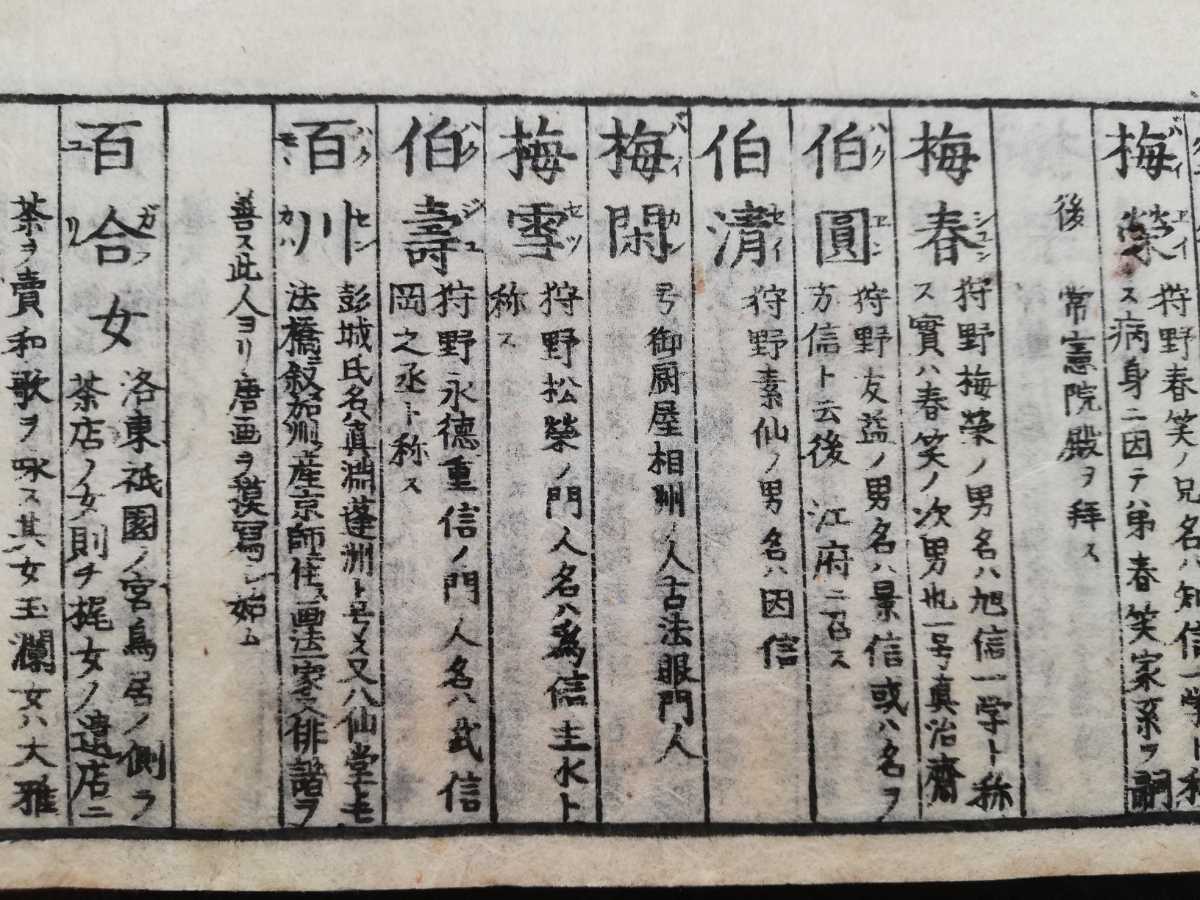 梅榮 バイ エイ
狩野春笑ノ兄名ハ知信一学ト称
ス病身ニ因テハ弟春笑家系ヲ嗣
後 常憲院殿ヲ拜ス
梅春 シユン
狩野梅榮ノ男名ハ旭信一学ト称
ス實ハ春笑ノ次男也一号真治齋
伯圓 ハク エン
狩野友益ノ男名ハ景信或ハ名ヲ
方信ト云後 江府ニ召ス
伯清 セイ
狩野素仙ノ男名ハ因信
梅閑 バイ カン
号御厨屋相州ノ人古法眼門人
梅雪 セツ
狩野松榮ノ門人名ハ為信主水ト
称ス
伯壽 ハク ジユ
狩野永德重信ノ門人名ハ武信
岡之丞ト称ス
百川 ハク セン モヽ カハ
彭城氏名ハ真淵蓬洲ト号ス又八仙堂トモ
法橋ニ叙ス加州ノ産京師ニ住ス画法一家又俳諧ヲ
善ス此人ヨリ唐画ヲ摸寫シ始ム
百合女 ガフ ユ リ
洛東祇園ノ宮鳥居ノ側ラ
茶店ノ女則チ梶女ノ遺店ニ
茶ヲ賣和歌ヲ咏ス其女玉瀾女ハ大雅